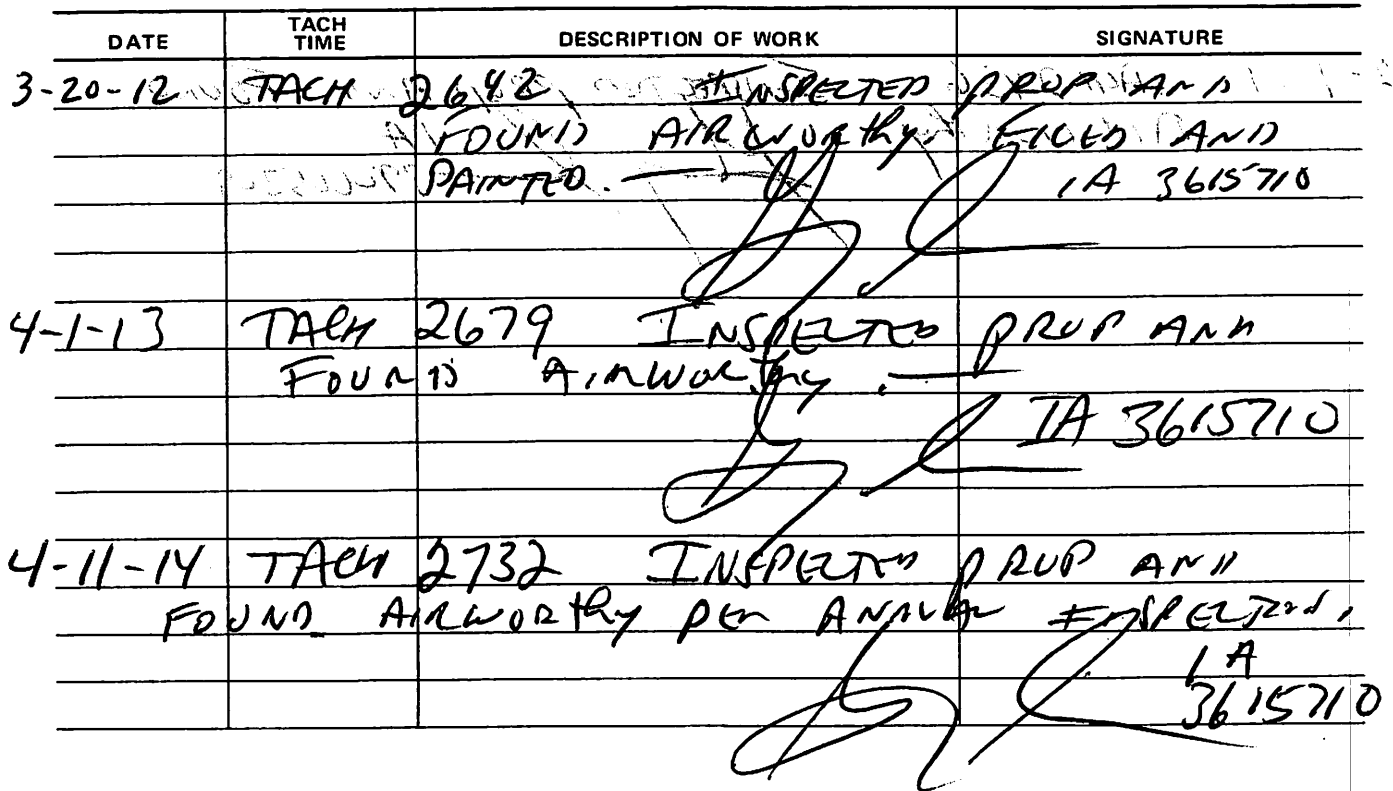 DATE TACH TIME DESCRIPTION OF WORK SIGNATURE
3-20-12 TACH 2642 INSPECTED PROP AND
FOUND AIRWORthy. FILED AND
PAINTED. IA 3615710
4-1-13 TACH 2679 INSPECTED PROP AND
FOUND AIRWORthy.
IA 3615710
4-11-14 TACH 2732 INSPECTED PROP AND
FOUND AIRWORthy PER ANNUAL INSPECTION.
IA
3615710